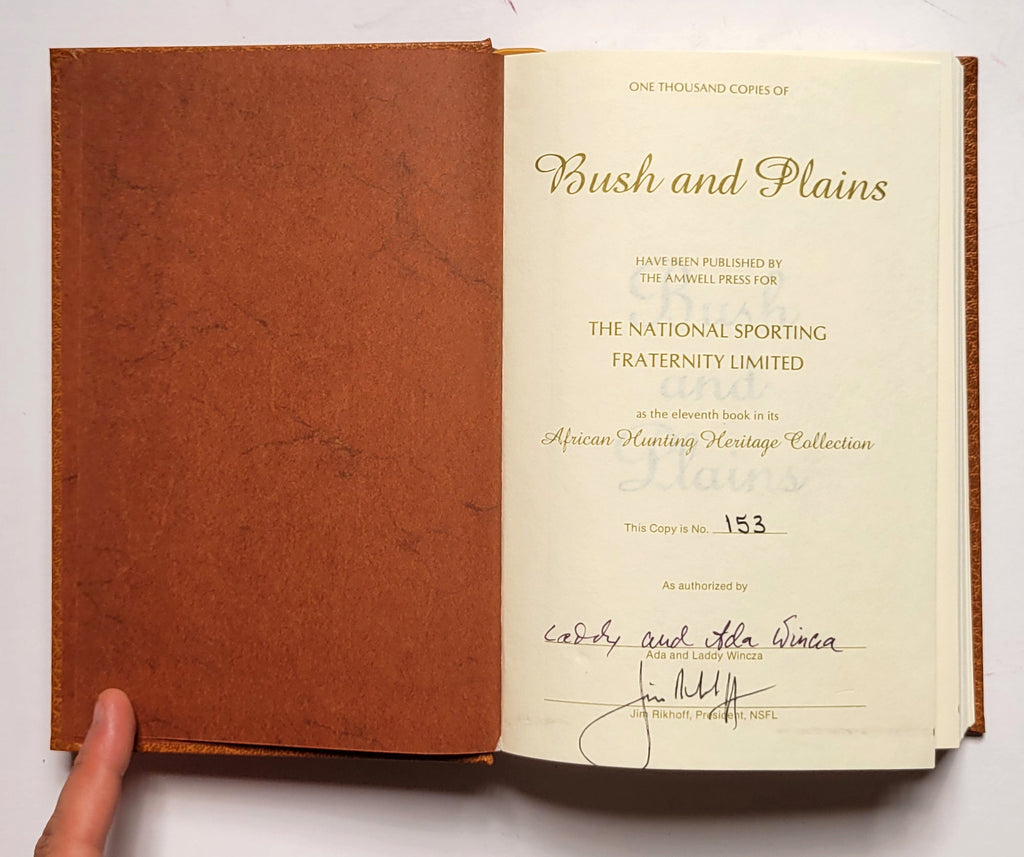 ONE THOUSAND COPIES OF
Bush and Plains
HAVE BEEN PUBLISHED BY
THE AMWELL PRESS FOR
THE NATIONAL SPORTING
FRATERNITY LIMITED
as the eleventh book in its
African Hunting Heritage Collection
This Copy is No. 153
As authorized by
Laddy and Ada Wincza
Ada and Laddy Wincza
Jim Rikhoff
Jim Rikhoff, President, NSFL
Bush
and
Plains